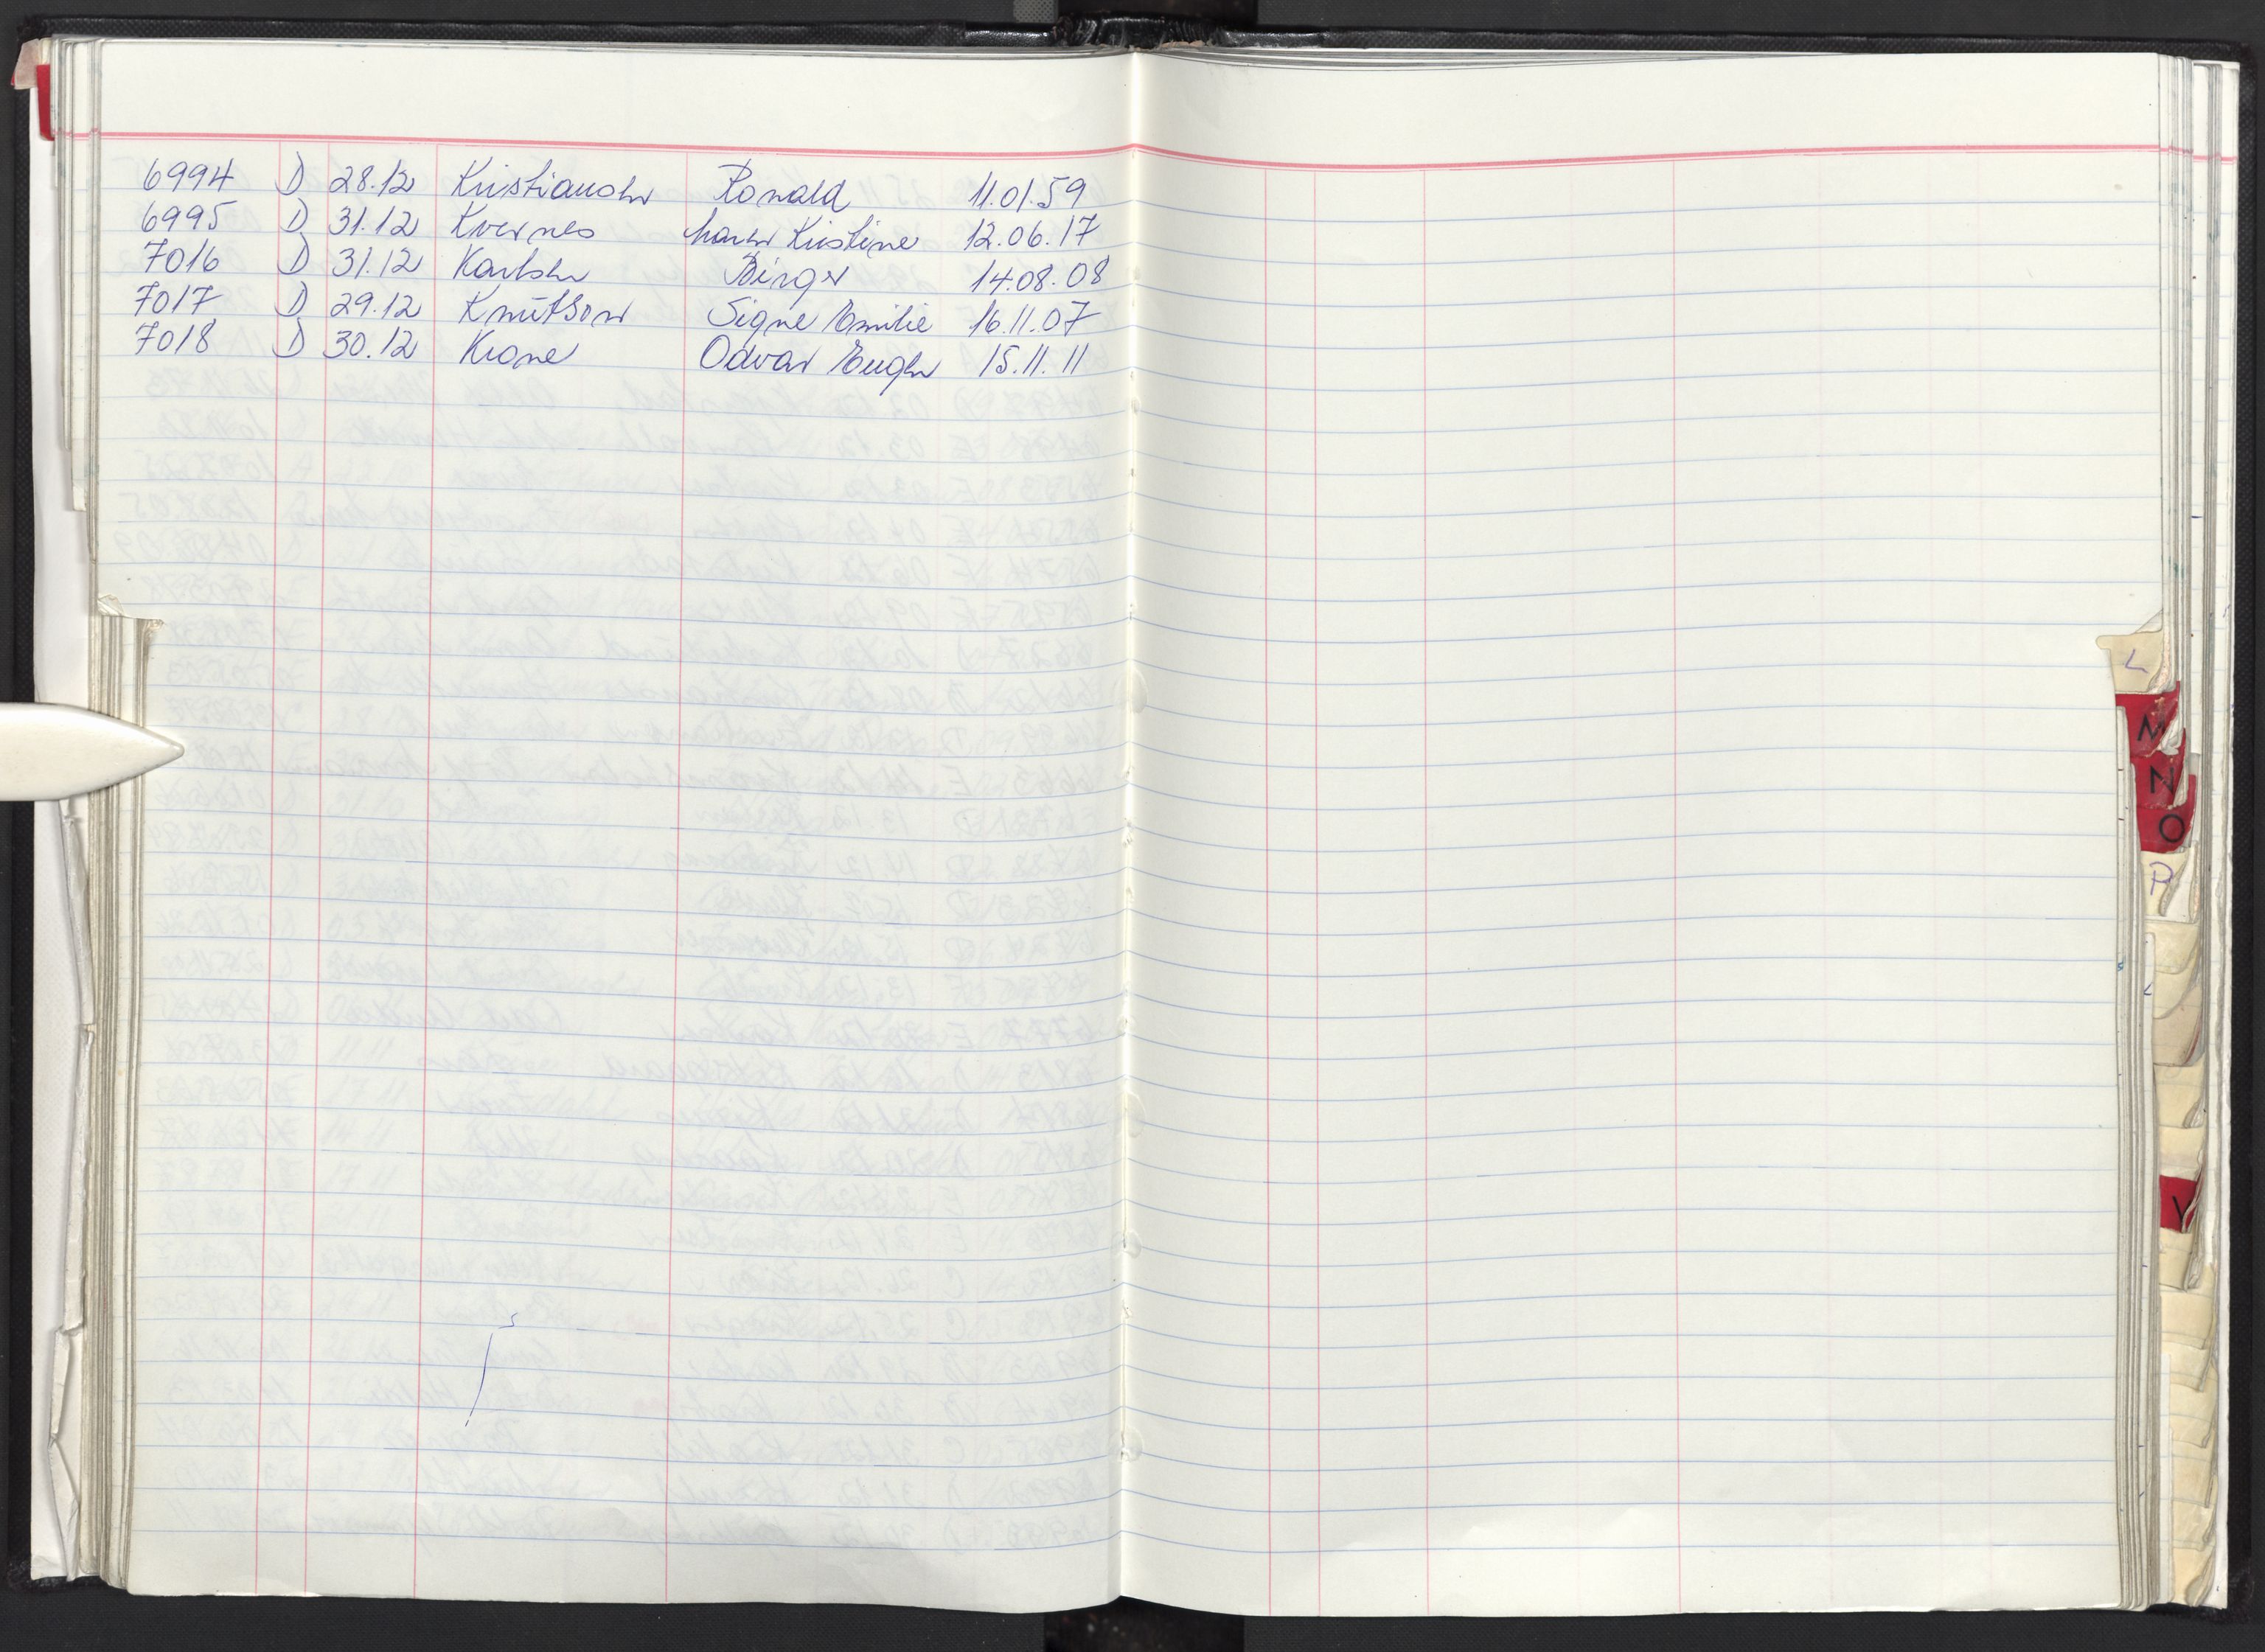 6994 D 28.12 Kristiansen Ronald 11.01.59
6995 D 31.12 Kvernes Maren Kristine 12.06.17
7016 D 31.12 Karlsen Birger 14.08.08
7017 D 29.12 Knutson Signe Emilie 16.11.07
7018 D 30.12 Krone Odvar Eugen 15.11.11
L
M
N
O
P
V